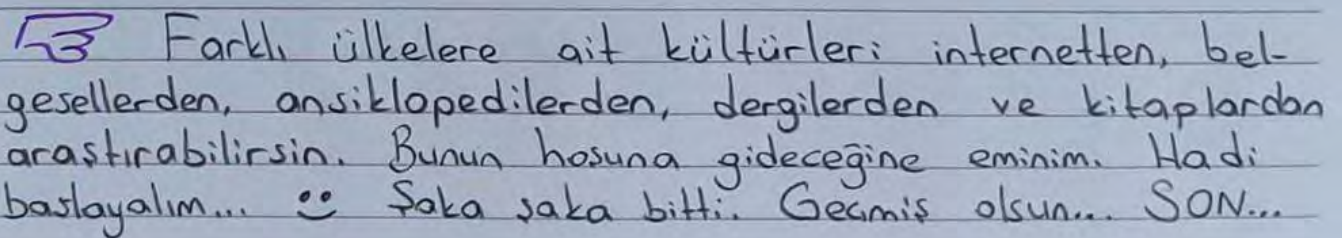 Farklı ülkelere ait kültürleri internetten, bel-
gesellerden, ansiklopedilerden, dergilerden ve kitaplardan
araştırabilirsin. Bunun hoşuna gideceğine eminim. Hadi
başlayalım... Şaka şaka bitti. Geçmiş olsun... SON...